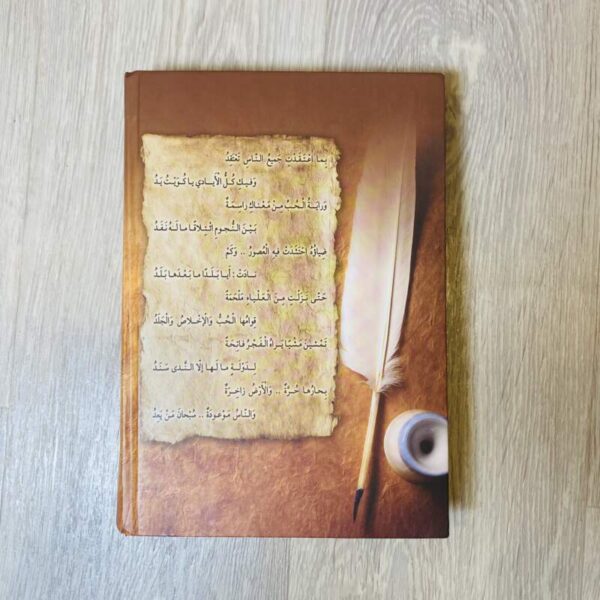 بِمَا اعْتَقَدْتِ جَمِيعُ النَّاسِ تَعْتَقِدُ
وَفِيكِ كُلُّ الْأَيَادِي يَا كُوَيْتُ يَدُ
وَرَايَةُ الْحُبِّ مِنْ مَعْنَاكِ رَاسِمَةٌ
بَيْنَ النُّجُومِ ائْتِلَاقًا مَا لَهُ نَفَدُ
ضِيَاؤُهُ احْتَشَدَتْ فِيهِ الْعُصُورُ .. وَكَمْ
نَادَتْ : أَيَا بَلَدًا مَا بَعْدَهَا بَلَدُ
حَتَّى نَزَلْتِ مِنَ الْعَلْيَاءِ مَلْحَمَةً
قِوَامُهَا الْحُبُّ وَالْإِخْلَاصُ وَالْجَلَدُ
تَمْشِينَ مَشْيًا يَرَاهُ الْفَجْرُ فَاتِحَةً
لِدَوْلَةٍ مَا لَهَا إِلَّا النَّدَى سَنَدُ
بِحَارُهَا حُرَّةٌ .. وَالْأَرْضُ زَاخِرَةٌ
وَالنَّاسُ مَوْعُودَةٌ .. سُبْحَانَ مَنْ يَعِدُ